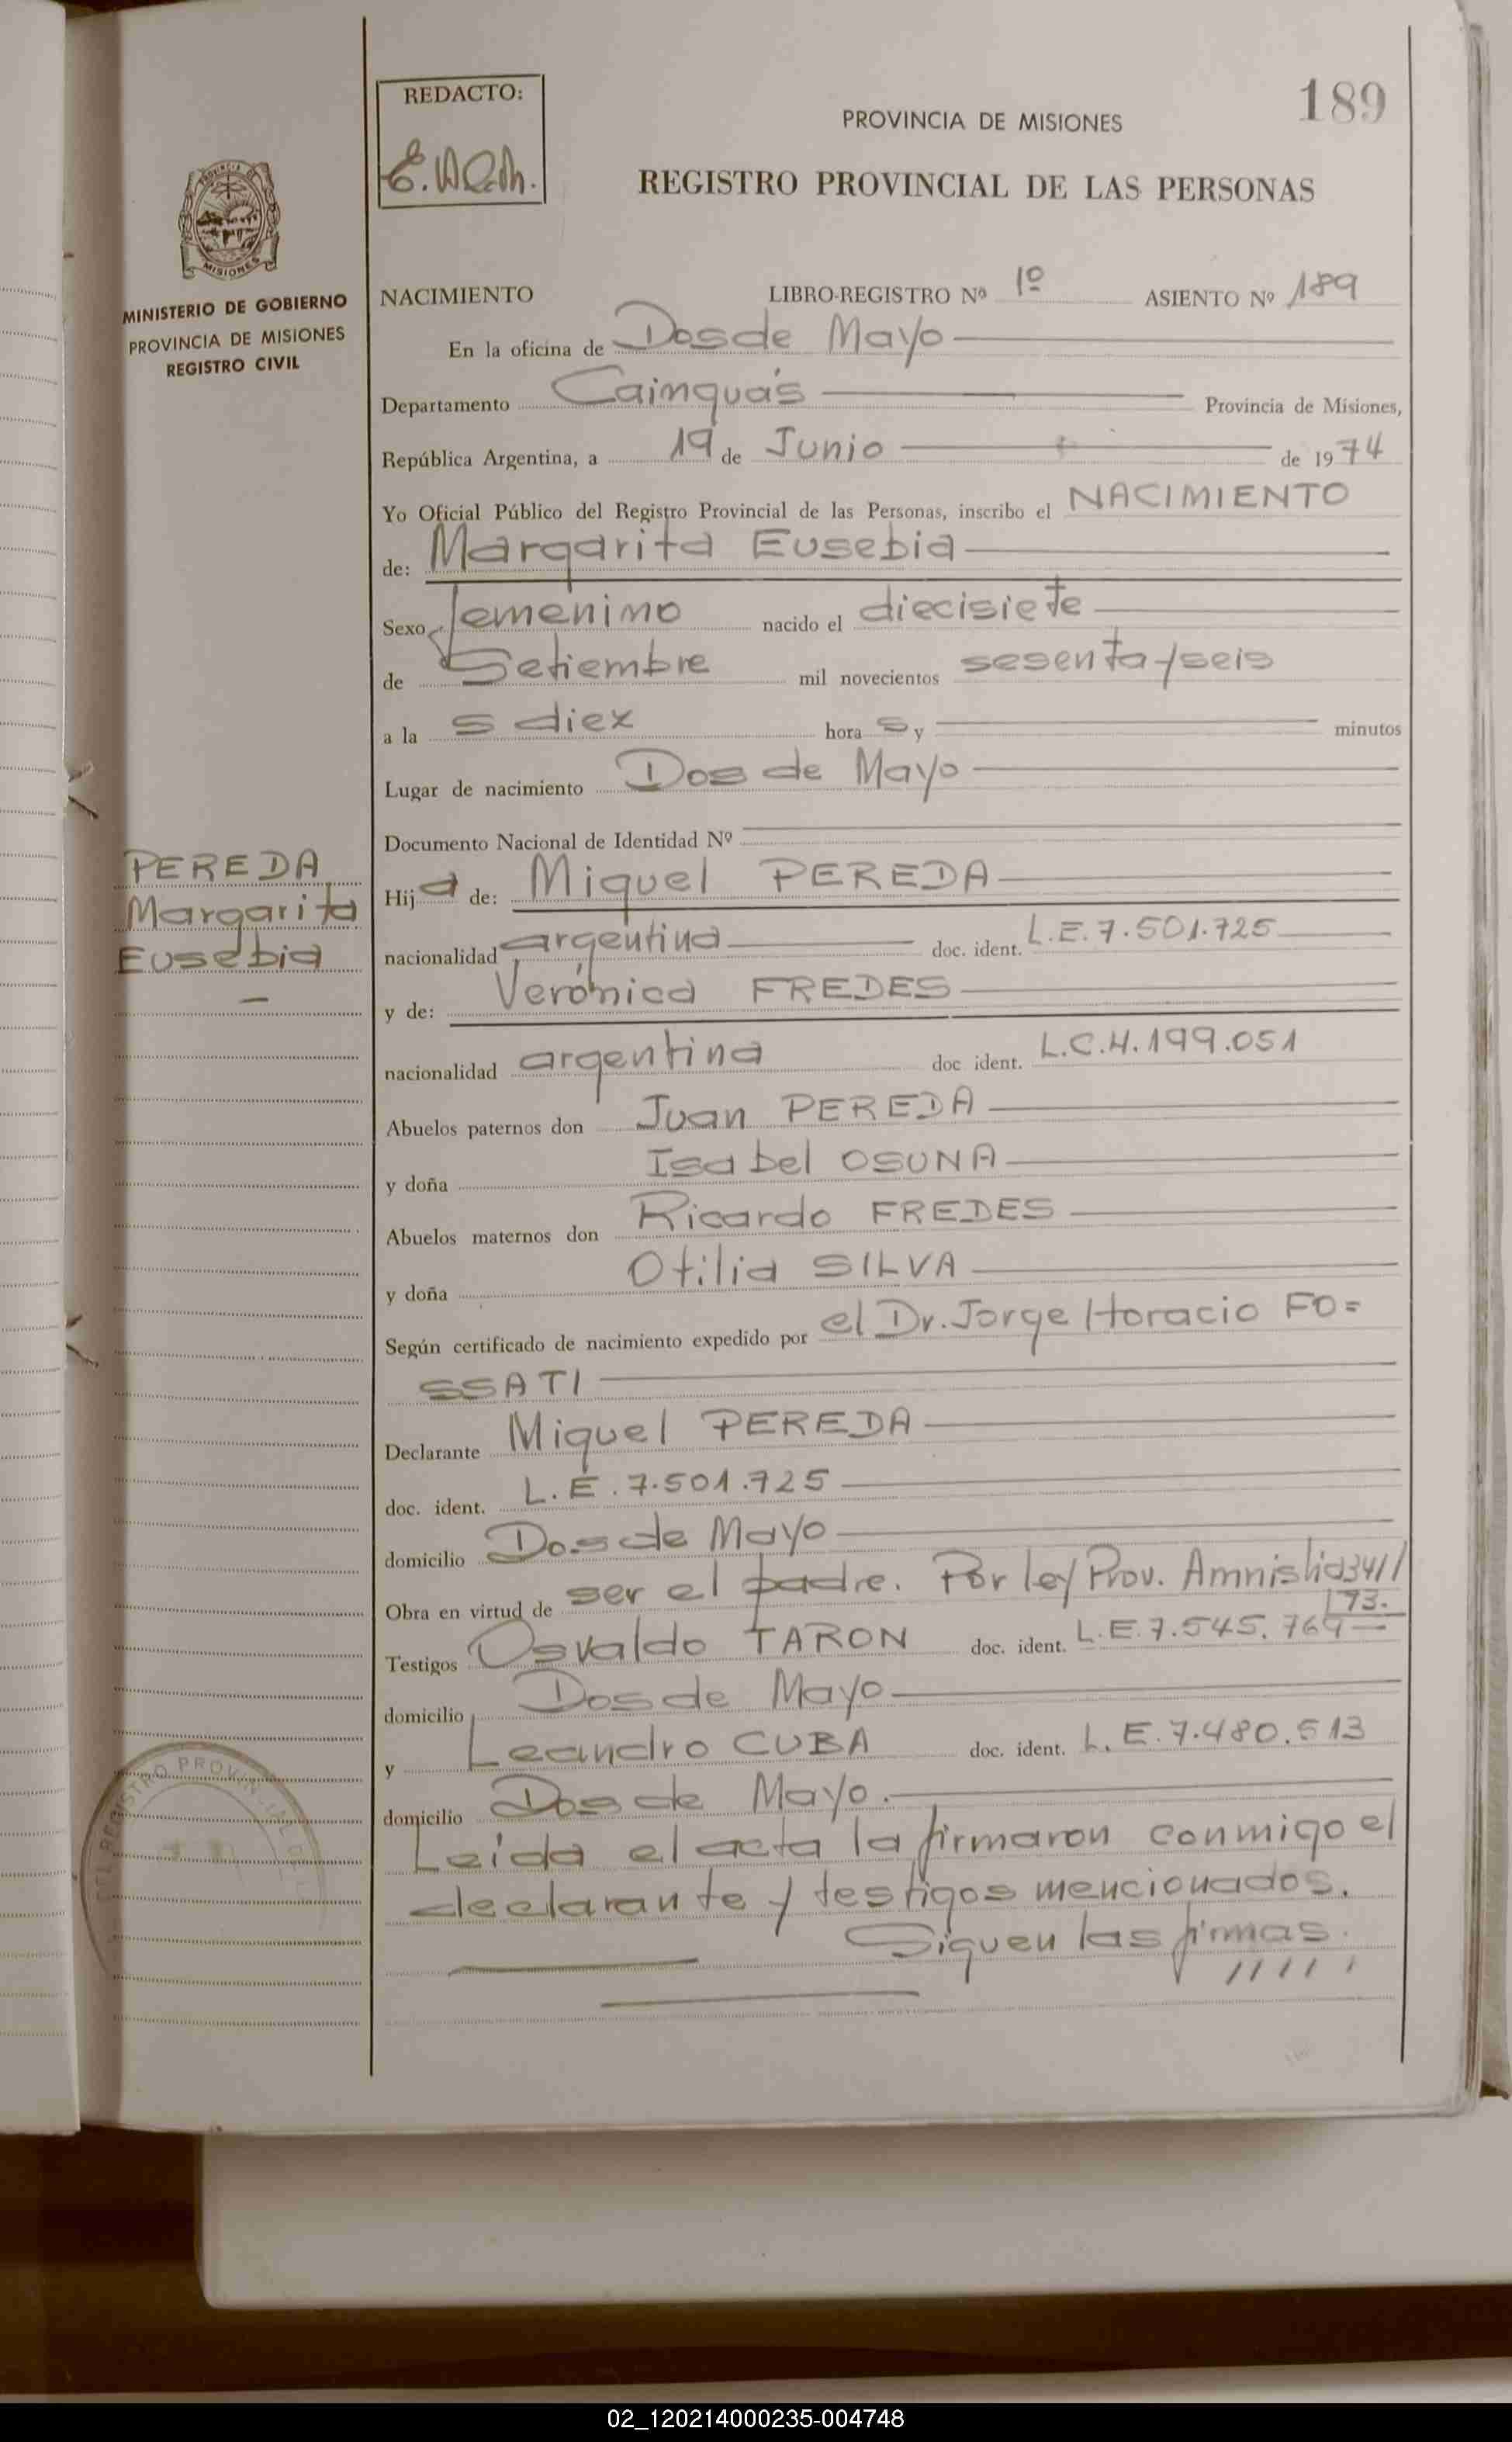 189
REDACTO:
PROVINCIA DE MISIONES
REGISTRO PROVINCIAL DE LAS PERSONAS
MISIONES
MINISTERIO DE GOBIERNO
PROVINCIA DE MISIONES
REGISTRO CIVIL
NACIMIENTO LIBRO-REGISTRO Nº 1º ASIENTO Nº 189
En la oficina de Dos de Mayo
Departamento Cainguás Provincia de Misiones,
República Argentina, a 19 de Junio de 1974
Yo Oficial Público del Registro Provincial de las Personas, inscribo el NACIMIENTO
de: Margarita Eusebia
Sexo femenino nacido el diecisiete
de Setiembre mil novecientos sesenta y seis
a la s diez hora s y minutos
Lugar de nacimiento Dos de Mayo
Documento Nacional de Identidad Nº
PEREDA
Margarita
Eusebia
Hija de: Miguel PEREDA
nacionalidad argentina doc. ident. L.E.7.501.725
y de: Verónica FREDES
nacionalidad argentina doc ident. L.C.4.199.051
Abuelos paternos don Juan PEREDA
y doña Isabel OSUNA
Abuelos maternos don Ricardo FREDES
y doña Otilia SILVA
Según certificado de nacimiento expedido por el Dr. Jorge Horacio FO=
SSATI
Declarante Miguel PEREDA
doc. ident. L.E.7.501.725
domicilio Dos de Mayo
Obra en virtud de ser el padre. Por ley Prov. Amnistia 341/
73.
Testigos Osvaldo TARON doc. ident. L.E.7.545.764
domicilio Dos de Mayo
y Leandro CUBA doc. ident. L.E.7.480.513
domicilio Dos de Mayo.
Leída el acta la firmaron conmigo el
declarante y testigos mencionados.
Siguen las firmas.
REGISTRO PROVINCIAL DE L
02_120214000235-004748